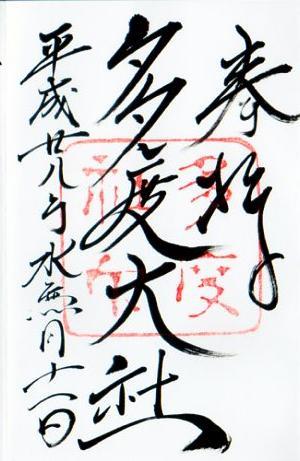 奉拝
多度大社
平成廿八年水無月十一日
多度神社